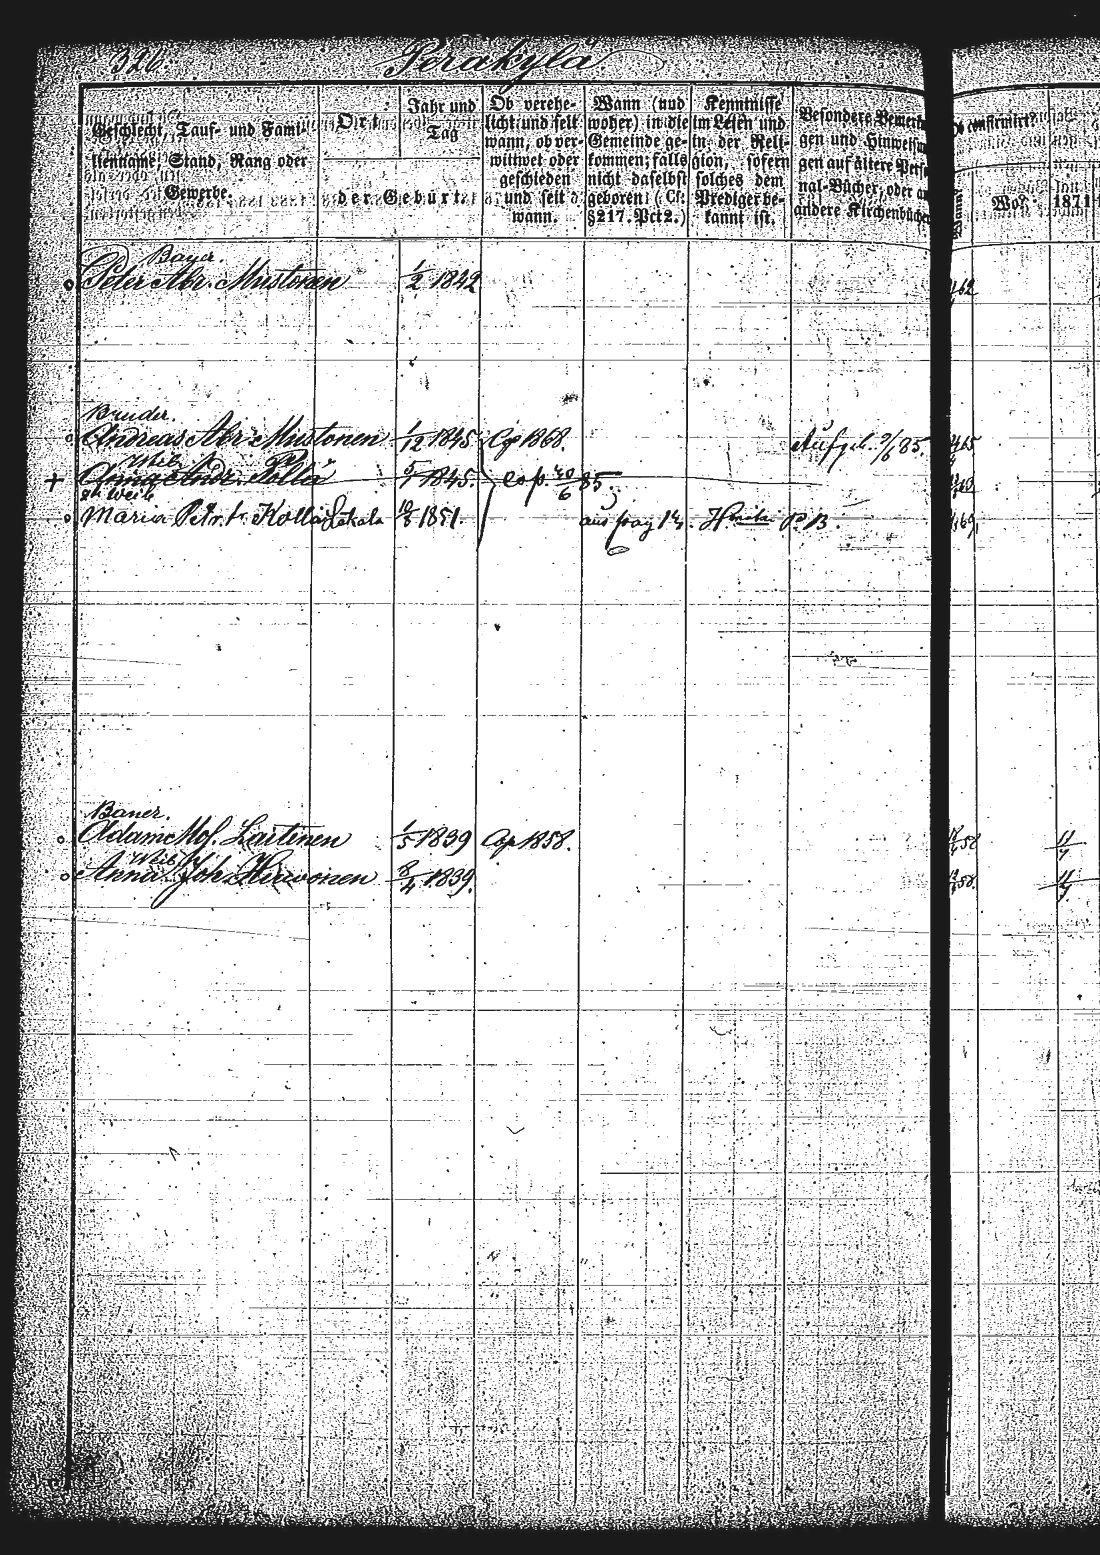 326. Peräkylä
Geschlecht, Tauf- und Fami-
lienname, Stand, Rang oder
Gewerbe.
Ort
Jahr und
Tag
der Geburt.
Ob verehe-
licht und seit
wann, ob ver-
wittwet oder
geschieden
und seit
wann.
Wann (und
woher) in die
Gemeinde ge-
kommen; falls
nicht daselbst
geboren? (Cf:
§217. Pct2.)
Kenntnisse
im Lesen und
in der Reli-
gion, sofern
solches dem
Prediger be-
kannt ist.
Besondere
gen und
gen auf ältere
nal-Bücher, oder
andere
confirmirt?
Wo?
1871
Bauer.
Peter Abr. Mustonen 1/2 1842
Bruder.
Andreas Abr. Mustonen 1/12 1845 Cop 1868. Aufgeb. 85.
Weib
Anna Andr. Pöllä 5/7 1845. cop. 30/6 85.
2t Weib
Maria Petr. t. 1851. aus pag 14.
Bauer.
Adam Mos. Laitinen 1/5 1839 Cop 1858. 11/7
Weib
Anna Joh. Hirwonen 8/4 1839. 11/7